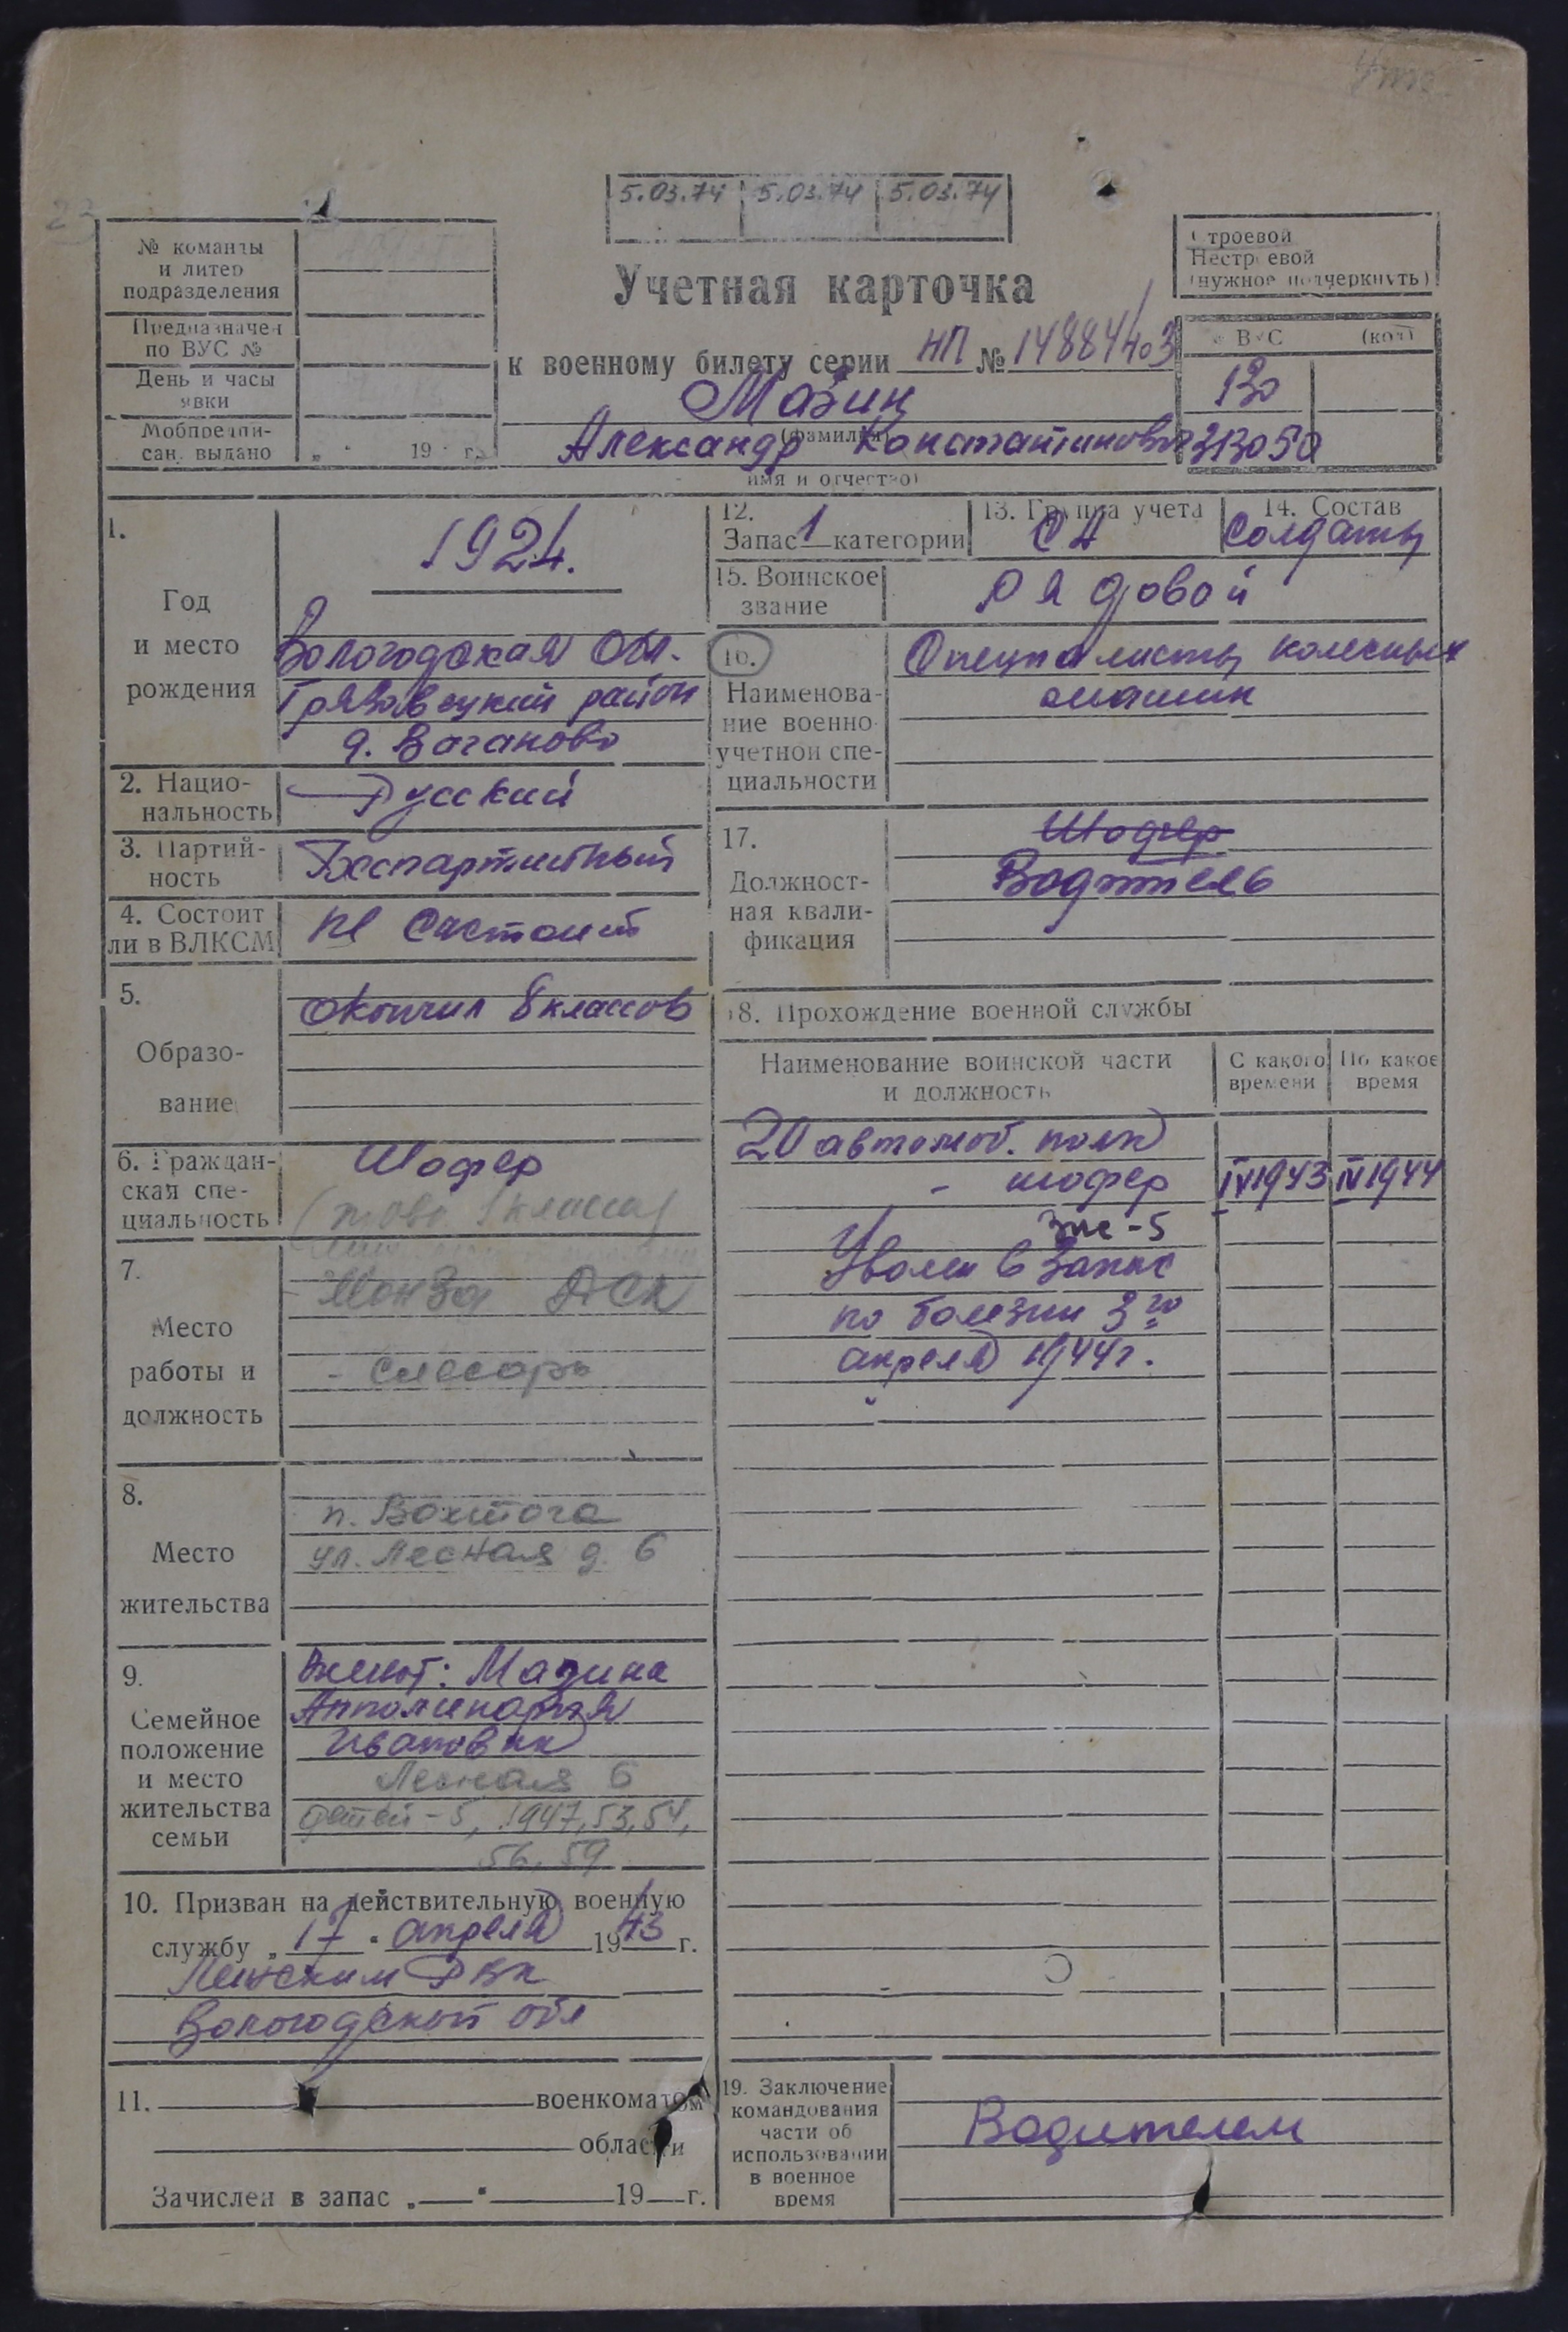 5.03.74 5.03.74 5.03.74
№ команды
и литер
подразделения
Предназначен
по ВУС №
День и часы
явки
Мобпредпи-
сан. выдано „ " 19 г.
Строевой
Нестроевой
(нужное подчеркнуть)
Учетная карточка
к военному билету серии НП № 1488403
№ ВУС (код)
130
Мазин
(фамилия)
Александр Константинович 313050
имя и отчество)
1.
Год
и место
рождения
1924.
Вологодская Обл.
Грязовецкий район
д. Ваганово
2. Нацио-
нальность
Русский
3. Партий-
ность
Беспартийный
4. Состоит
ли в ВЛКСМ
не Состоит
5.
Образо-
вание
окончил 8 классов
6. Граждан-
ская спе-
циальность
Шофер
1 класса)
7.
Место
работы и
должность
Монза ДСК
- слесарь
8.
Место
жительства
п. Вохтога
ул. Лесная д. 6
9.
Семейное
положение
и место
жительства
семьи
женат: Мазина
Апполинария
Ивановна
Лесная 6
детей - 5, 1947, 53, 54,
56, 59
10. Призван на действительную военную
службу „ 17 " апреля 1943 г.
РВК
Вологодской обл
11. военкоматом
области
Зачислен в запас „ " 19 г.
12.
Запас 1 категории
13. Группа учета
СА
14. Состав
Солдаты
15. Воинское
звание
Рядовой
16.
Наименова-
ние военно-
учетной спе-
циальности
Специалисты колесных
машин
17.
Должност-
ная квали-
фикация
Шофер
Водитель
18. Прохождение военной службы
Наименование воинской части
и должность
С какого
времени
По какое
время
20 автомоб. полк
- шофер IV 1943 IV 1944
Зис-5
Уволен в Запас
по болезни 3го
апреля 1944г.
19. Заключение
командования
части об
использовании
в военное
время
Водителем